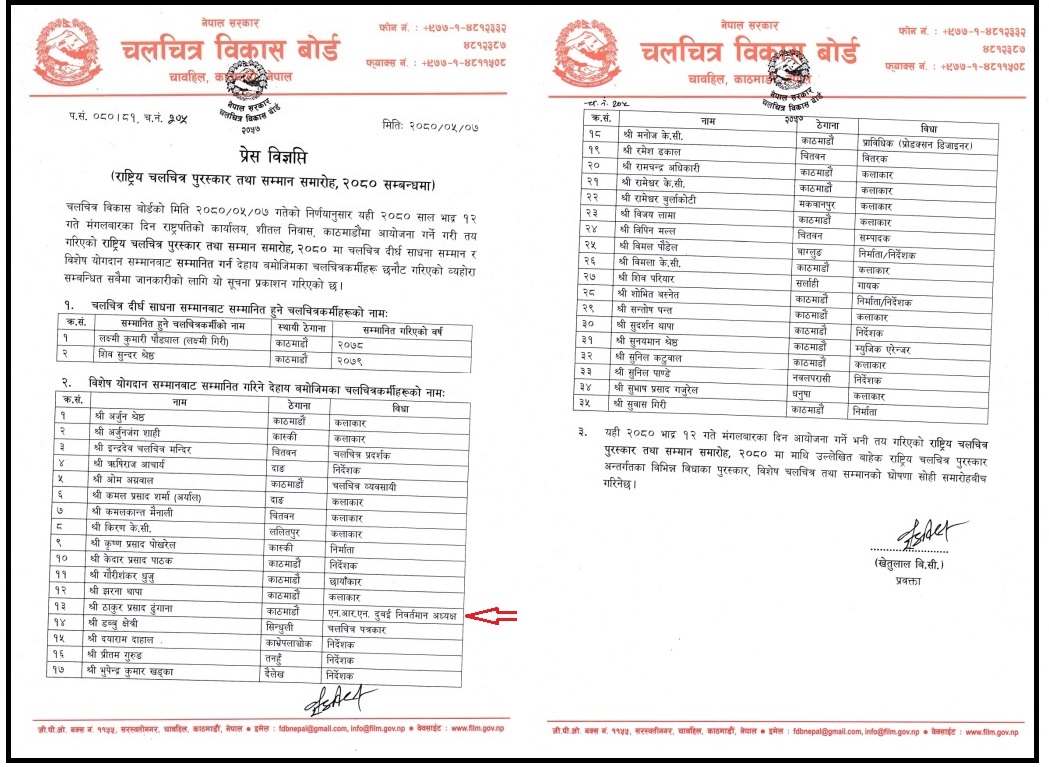 नेपाल सरकार
चलचित्र विकास बोर्ड
चावहिल, काठमाडौं नेपाल
फोन नं. : +९७७-१-४८१२३३२
४८१२३८७
फ्याक्स नं. : +९७७-१-४८११५०८
नेपाल सरकार
चलचित्र विकास बोर्ड
२०५७
प.सं. ०८०।८१, च.नं. २०५
मितिः २०८०/०५/०७
प्रेस विज्ञप्ति
(राष्ट्रिय चलचित्र पुरस्कार तथा सम्मान समारोह, २०८० सम्बन्धमा)
चलचित्र विकास बोर्डको मिति २०८०/०५/०७ गतेको निर्णयानुसार यही २०८० साल भाद्र १२
गते मंगलबारका दिन राष्ट्रपतिको कार्यालय, शीतल निवास, काठमाडौंमा आयोजना गर्ने गरी तय
गरिएको राष्ट्रिय चलचित्र पुरस्कार तथा सम्मान समारोह, २०८० मा चलचित्र दीर्घ साधना सम्मान र
विशेष योगदान सम्मानबाट सम्मानित गर्न देहाय बमोजिमका चलचित्रकर्मीहरू छनौट गरिएको व्यहोरा
सम्बन्धित सबैमा जानकारीको लागि यो सूचना प्रकाशन गरिएको छ।
१. चलचित्र दीर्घ साधना सम्मानबाट सम्मानित हुने चलचित्रकर्मीहरूको नामः
क्र.सं. सम्मानित हुने चलचित्रकर्मीको नाम स्थायी ठेगाना सम्मानित गरिएको वर्ष
१ लक्ष्मी कुमारी पौडयाल (लक्ष्मी गिरी) काठमाडौं २०७८
२ शिव सुन्दर श्रेष्ठ काठमाडौं २०७९
२. विशेष योगदान सम्मानबाट सम्मानित गरिने देहाय बमोजिमका चलचित्रकर्मीहरूको नामः
क्र.सं. नाम ठेगाना विधा
१ श्री अर्जुन श्रेष्ठ काठमाडौं कलाकार
२ श्री अर्जुनजंग शाही कास्की कलाकार
३ श्री इन्द्रदेव चलचित्र मन्दिर चितवन चलचित्र प्रदर्शक
४ श्री ऋषिराज आचार्य दाङ निर्देशक
५ श्री ओम अग्रवाल काठमाडौं चलचित्र व्यवसायी
६ श्री कमल प्रसाद शर्मा (अर्याल) दाङ कलाकार
७ श्री कमलकान्त मैनाली चितवन कलाकार
८ श्री किरण के.सी. ललितपुर कलाकार
९ श्री कृष्ण प्रसाद पोखरेल कास्की निर्माता
१० श्री केदार प्रसाद पाठक काठमाडौं निर्देशक
११ श्री गौरीशंकर धुजु काठमाडौं छायाँकार
१२ श्री झरना थापा काठमाडौं कलाकार
१३ श्री ठाकुर प्रसाद ढुंगाना काठमाडौं एन.आर.एन. दुबई निवर्तमान अध्यक्ष
१४ श्री डब्बु क्षेत्री सिन्धुली चलचित्र पत्रकार
१५ श्री दयाराम दाहाल काभ्रेपलाञ्चोक निर्देशक
१६ श्री प्रीतम गुरुङ तनहुँ निर्देशक
१७ श्री भुपेन्द्र कुमार खड्का दैलेख निर्देशक
जी.पी.ओ. बक्स नं. ११५५, सरस्वतीनगर, चावहिल, काठमाडौं, नेपाल ● इमेल : fdbnepal@gmail.com, info@film.gov.np ● वेबसाईट : www.film.gov.np
नेपाल सरकार
चलचित्र विकास बोर्ड
चावहिल, काठमाडौं,
फोन नं. : +९७७-१-४८१२३३२
४८१२३८७
फ्याक्स नं. : +९७७-१-४८११५०८
नेपाल सरकार
चलचित्र विकास बोर्ड
२०५७
च.नं. २०५
क्र.सं. नाम ठेगाना विधा
१८ श्री मनोज के.सी. काठमाडौं प्राविधिक (प्रोडक्सन डिजाइनर)
१९ श्री रमेश ढकाल चितवन वितरक
२० श्री रामचन्द्र अधिकारी काठमाडौं कलाकार
२१ श्री रामेश्वर के.सी. काठमाडौं कलाकार
२२ श्री रामेश्वर बुर्लाकोटी मकवानपुर कलाकार
२३ श्री विजय लामा काठमाडौं कलाकार
२४ श्री विपिन मल्ल चितवन सम्पादक
२५ श्री विमल पौडेल बाग्लुङ निर्माता/निर्देशक
२६ श्री विमला के.सी. काठमाडौं कलाकार
२७ श्री शिव परियार सर्लाही गायक
२८ श्री शोभित बस्नेत काठमाडौं निर्माता/निर्देशक
२९ श्री सन्तोष पन्त काठमाडौं कलाकार
३० श्री सुदर्शन थापा काठमाडौं निर्देशक
३१ श्री सुनयमान श्रेष्ठ काठमाडौं म्युजिक एरेन्जर
३२ श्री सुनिल कटुवाल काठमाडौं कलाकार
३३ श्री सुनिल पाण्डे नवलपरासी निर्देशक
३४ श्री सुभाष प्रसाद गजुरेल धनुषा कलाकार
३५ श्री सुवास गिरी काठमाडौं निर्माता
३. यही २०८० भाद्र १२ गते मंगलबारका दिन आयोजना गर्ने भनी तय गरिएको राष्ट्रिय चलचित्र
पुरस्कार तथा सम्मान समारोह, २०८० मा माथि उल्लेखित बाहेक राष्ट्रिय चलचित्र पुरस्कार
अन्तर्गतका विभिन्न विधाका पुरस्कार, विशेष चलचित्र तथा सम्मानको घोषणा सोही समारोहबीच
गरिनेछ।
(खेतुलाल बि.सी.)
प्रवक्ता
जी.पी.ओ. बक्स नं. ११५५, सरस्वतीनगर, चावहिल, काठमाडौं, नेपाल ● इमेल : fdbnepal@gmail.com, info@film.gov.np ● वेबसाईट : www.film.gov.np